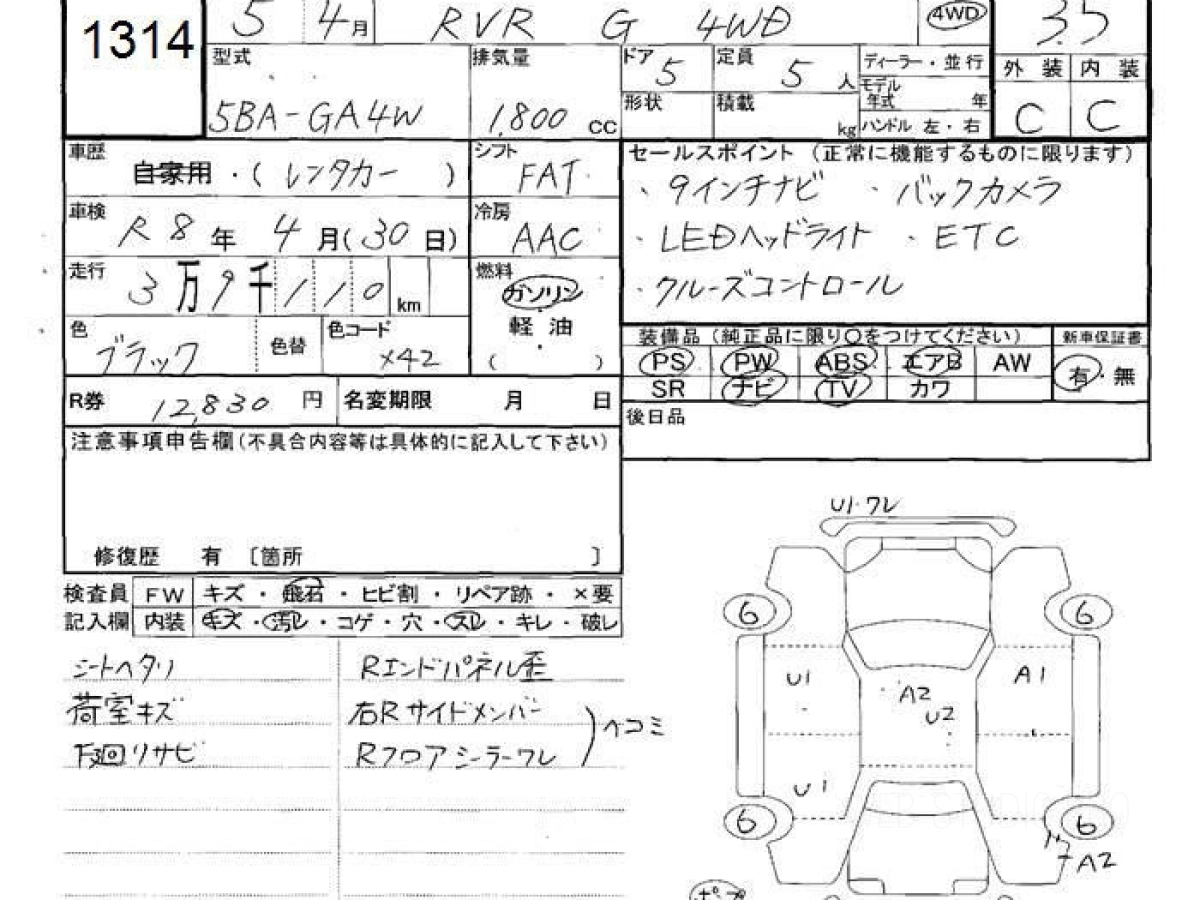 1314
5 4月 RVR G 4WD 4WD 3.5
型式 排気量 ドア 5 定員 5 人 ディーラー・並行 外装 内装
5BA-GA4W 1,800 cc 形状 積載 kg モデル年式 年 C C
ハンドル 左・右
車歴 自家用・(レンタカー) シフト FAT
セールスポイント (正常に機能するものに限ります)
・9インチナビ ・バックカメラ
車検 R8年 4月(30日) 冷房 AAC
・LEDヘッドライト ・ETC
走行 3万9千110km 燃料 ガソリン
・クルーズコントロール
軽油
( ・ )
色 ブラック 色替 色コード X42
装備品 (純正品に限り○をつけてください) 新車保証書
PS PW ABS エアB AW 有・無
SR ナビ TV カワ
R券 12,830 円 名変期限 月 日
後日品
注意事項申告欄(不具合内容等は具体的に記入して下さい)
修復歴 有 [箇所 ]
検査員 FW キズ・飛石・ヒビ割・リペア跡・×要
記入欄 内装 キズ・汚レ・コゲ・穴・スレ・キレ・破レ
シートヘタリ Rエンドパネル歪
荷室キズ 右Rサイドメンバー
ヘコミ
下廻リサビ Rフロアシーラーワレ
U1・ワレ
6 6
U1 A2 A1
U2
U1
6 6
A2